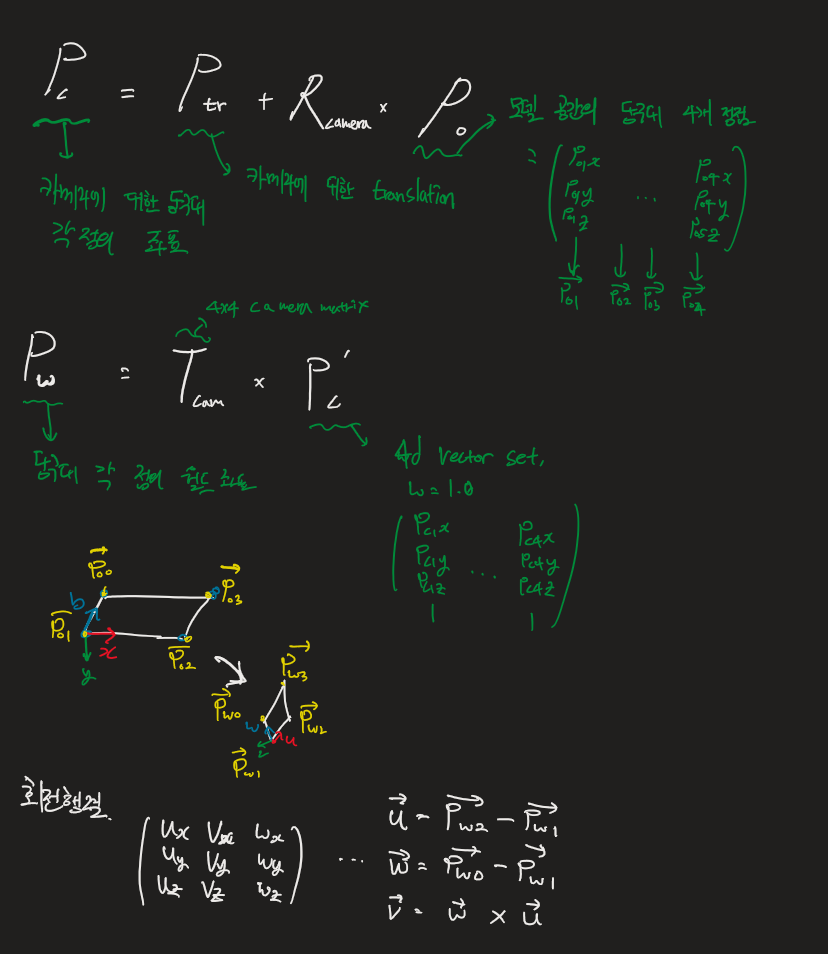 P_c = P_tr + R_camera × P_o
카메라에 대한 당구대
각 점의 좌표
카메라에 대한 translation
모델 공간의 당구대 4개 정점
= ( P_01x ... P_04x )
( P_01y ... P_04y )
( P_01z ... P_05z )
P_01 P_02 P_03 P_04
4x4 camera matrix
P_w = T_cam × P_c'
당구대 각 점의 월드 좌표
4d vector set,
w = 1.0
( P_c1x ... P_c4x )
( P_c1y ... P_c4y )
( P_c1z ... P_c4z )
( 1 1 )
P_00 P_03
b
P_01 x P_02
y
P_w3
P_w0 w u P_w2
P_w1
회전행렬
( U_x V_x W_x )
( U_y V_y W_y )
( U_z V_z W_z )
...
u = P_w2 - P_w1
w = P_w0 - P_w1
v = w × u